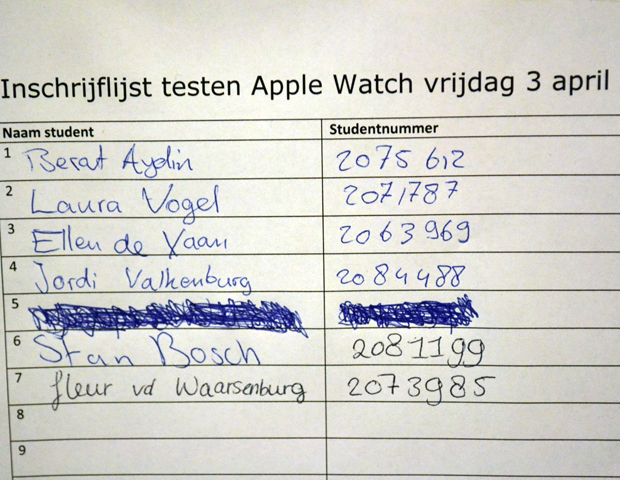 Inschrijflijst testen Apple Watch vrijdag 3 april
Naam student Studentnummer
1 Berat Aydin 2075612
2 Laura Vogel 2071787
3 Ellen de Vaan 2063969
4 Jordi Valkenburg 2084488
5
6 Stan Bosch 2081199
7 fleur vd Waarsenburg 2073985
8
9